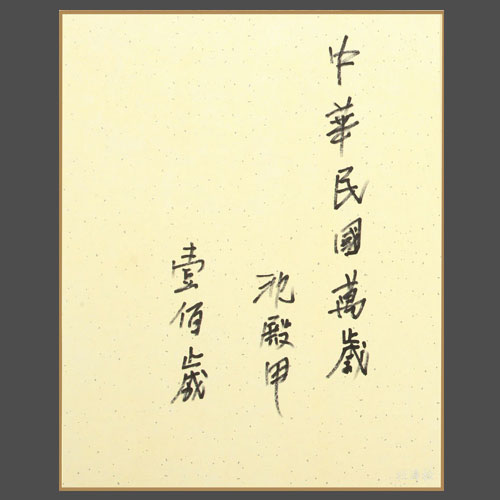 中華民國萬歲
池殿甲
壹佰歲